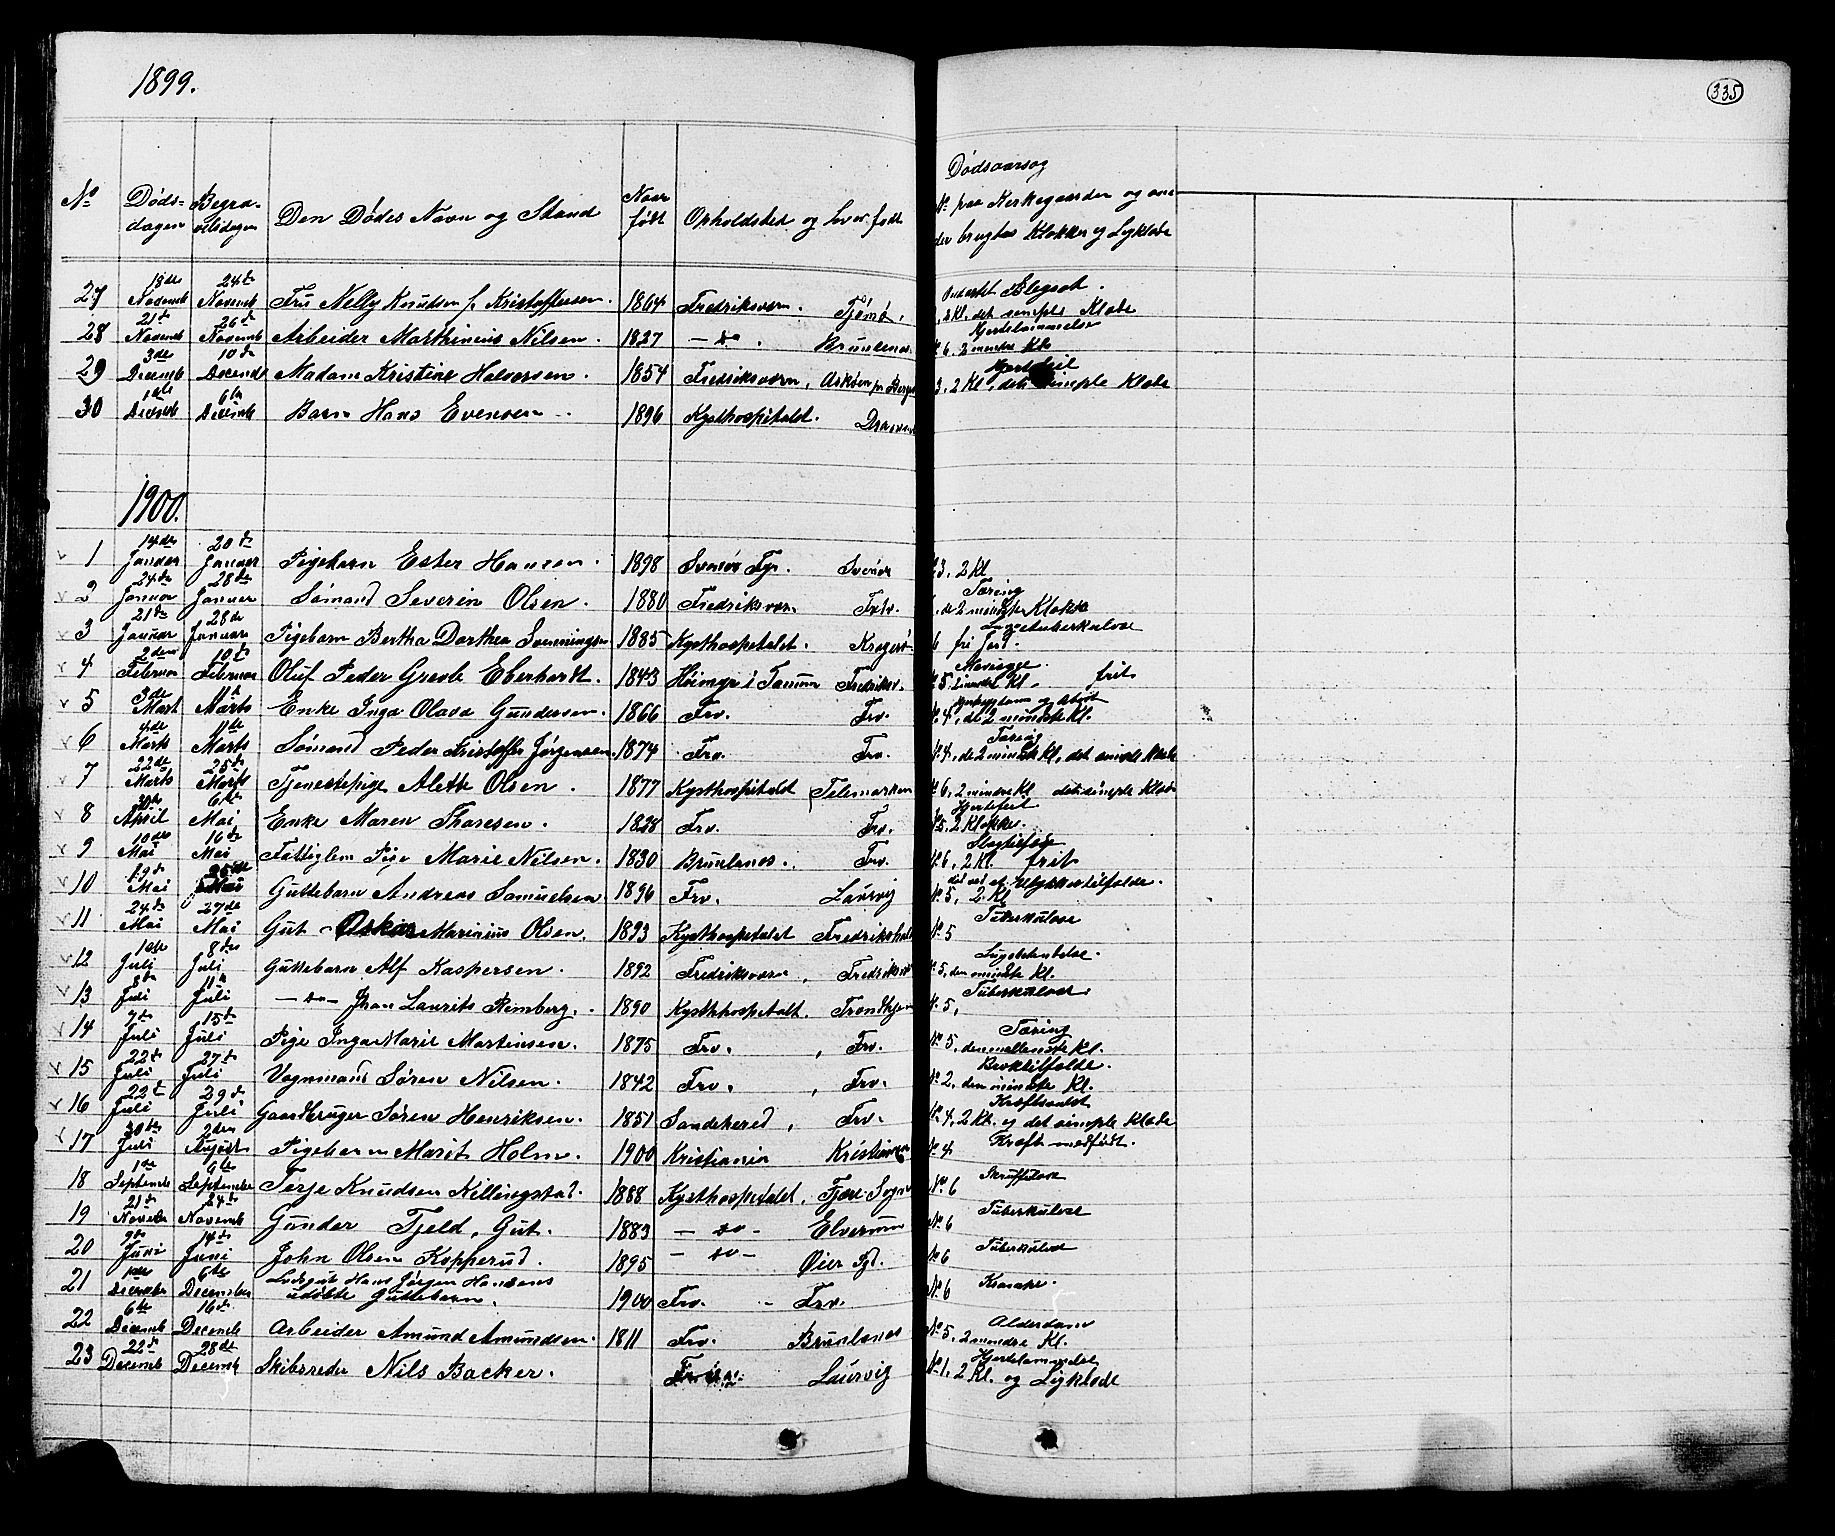 1899.
335
No Døds- Begra- Den Dødes Navn og Stand Naar Opholdsted og hvor født Dødsaarsag
dagen velsdagen født No paa Kirkegaarden og om
der brugtes Klokker og Ligklæde
27 18de Novemb 24de Novemb Fru Nelly Knudsen f. Kristoffersen. 1864 Fredriksværn. Tjømø. 2 Kl. det simple Klæde
28 21de Novemb 26de Novemb Arbeider Marthinius Nilsen. 1827 - do - Brunlanæs. Hjertelammelse No 6. 2 mindre Kl.
29 3de Decemb 10de Decemb Madam Kristine Halvorsen. 1854 Fredriksværn, Askøen pr Bergen Hjertefeil 3. 2 Kl, det simple Klæde
30 1ste Decemb 6te Decemb Barn Hans Evensen. 1896 Kysthospitalet.
1900.
1 14de Januar 20de Januar Pigebarn Ester Hansen. 1898 Svenør Fyr. Svenør No 3. 2 Kl
2 24de Januar 28de Januar Sømand Severin Olsen. 1880 Fredriksværn Frv. Tæring de 2 mindste Klokke
3 21de Januar 28de Januar Pigebarn Bertha Dorthea Svenningsen 1885 Kysthospitalet. Kragerø 6 fri Jord.
4 2den Februar 10de Februar Oluf Peder Grevle Eberhardt. 1843 Høimyr i Tanum Fredriksv. No 5. Kl. frit
5 3de Mart Marts Enke Inga Olava Gundersen. 1866 Frv. Frv. No 4, de 2 mindste Kl.
6 4de Marts 11te Marts Sømand Peder Kristoffer Jørgensen. 1874 Frv. Frv. Tæring No 4. de 2 mindste Kl, det simple Klæde
7 22de Marts 25de Marts Tjenestepige Alette Olsen. 1877 Kysthospitalet Telemarken No 6, 2 mindre Kl det simple Klæde
8 30te April 6te Mai Enke Maren Thoresen. 1828 Frv. Frv. Hjertefeil No 5. 2 Klokker.
9 10de Mai 16de Mai Fattiglem Pige Marie Nilsen. 1830 Brunlanæs. Frv. No 6, 2 Kl. frit
10 19de Mai Mai Guttebarn Andreas Samuelsen 1896 Frv. Laurvig død ved et Ulykkestilfælde. No 5, 2 Kl
11 24de Mai 27de Mai Gut - Oskar Marinius Olsen. 1893 Kysthospitalet Fredrikshald Tuberkulose No 5
12 1ste Juli 8de Juli Guttebarn Alf Kaspersen. 1892 Fredriksværn, Fredriksv No 5, den mindste Kl.
13 8de Juli Juli - do - Johan Laurits Rimberg. 1890 Kysthospitalet. Trondhjem Tuberkulose No 5,
14 9de Juli 15de Juli Pige Inga Marie Martinsen. 1875 Frv. , Frv. Tæring No 5, den mellemste Kl.
15 22de Juli 27de Juli Vognmand Søren Nilsen. 1842 Frv. , Frv. Broktilfælde. No 2, den mindste Kl.
16 22de Juli 29de Juli Gaardbruger Søren Henriksen. 1851 Sandeherred, Frv. Kræftsvulst No 4, 2 Kl. og det simple Klæde
17 30te Juli 2den August Pigebarn Marit Holm. 1900 Kristiania Kristiania Kræft medfødt. No 4
18 1ste Septemb 9de Septembr Terje Knudsen Killingstad. 1888 Kysthospitalet, Fjære Sogn Skruffulose No 6
19 21de Novebr 24de Novemb Gunder Fjeld, Gut. 1883 - do - Elverum Tuberkulose No 6
20 9de Juni 14de Juni John Olsen Kopperud. 1895 - do - Øier Pgd. Tuberkulose No 6
21 1ste Decembr 6te Decembr Lodsgut Hans Jørgen Hansens
udøbte Guttebarn. 1900 Frv. - Frv. Krampe. No 6
22 6te Decemb 16de Decemb Arbeider Amund Amundsen. 1811 Frv. Brunlanæs Alderdom No 5. 2 mindre Kl.
23 22de Decemb 28de Decemb Skibsreder Nils Backer. Laurvig Hjertelammelse No 1. 2 Kl. og Ligklæde